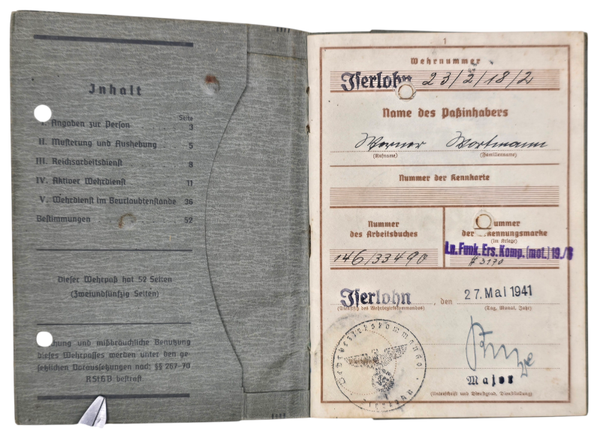 Inhalt
Seite
I. Angaben zur Person 3
II. Musterung und Aushebung 5
III. Reichsarbeitsdienst 9
IV. Aktiver Wehrdienst 11
V. Wehrdienst im Beurlaubtenstande 36
Bestimmungen 52
Dieser Wehrpaß hat 52 Seiten
(Zweiundfünfzig Seiten)
und mißbräuchliche Benutzung
dieses Wehrpasses werden unter den ge-
setzlichen Voraussetzungen nach §§ 267-70
RStGB bestraft
1
Wehrnummer
Iserlohn 23/2/18/2
Name des Paßinhabers
Werner Wortmann
(Rufname) (Familienname)
Nummer der Kennkarte
Nummer
des Arbeitsbuches
146/33490
Nummer
der Erkennungsmarke
(im Kriege)
Ln. Funk. Ers. Komp. (mot.) 19./6
Iserlohn, den 27. Mai 1941
(Tag, Monat, Jahr)
Major